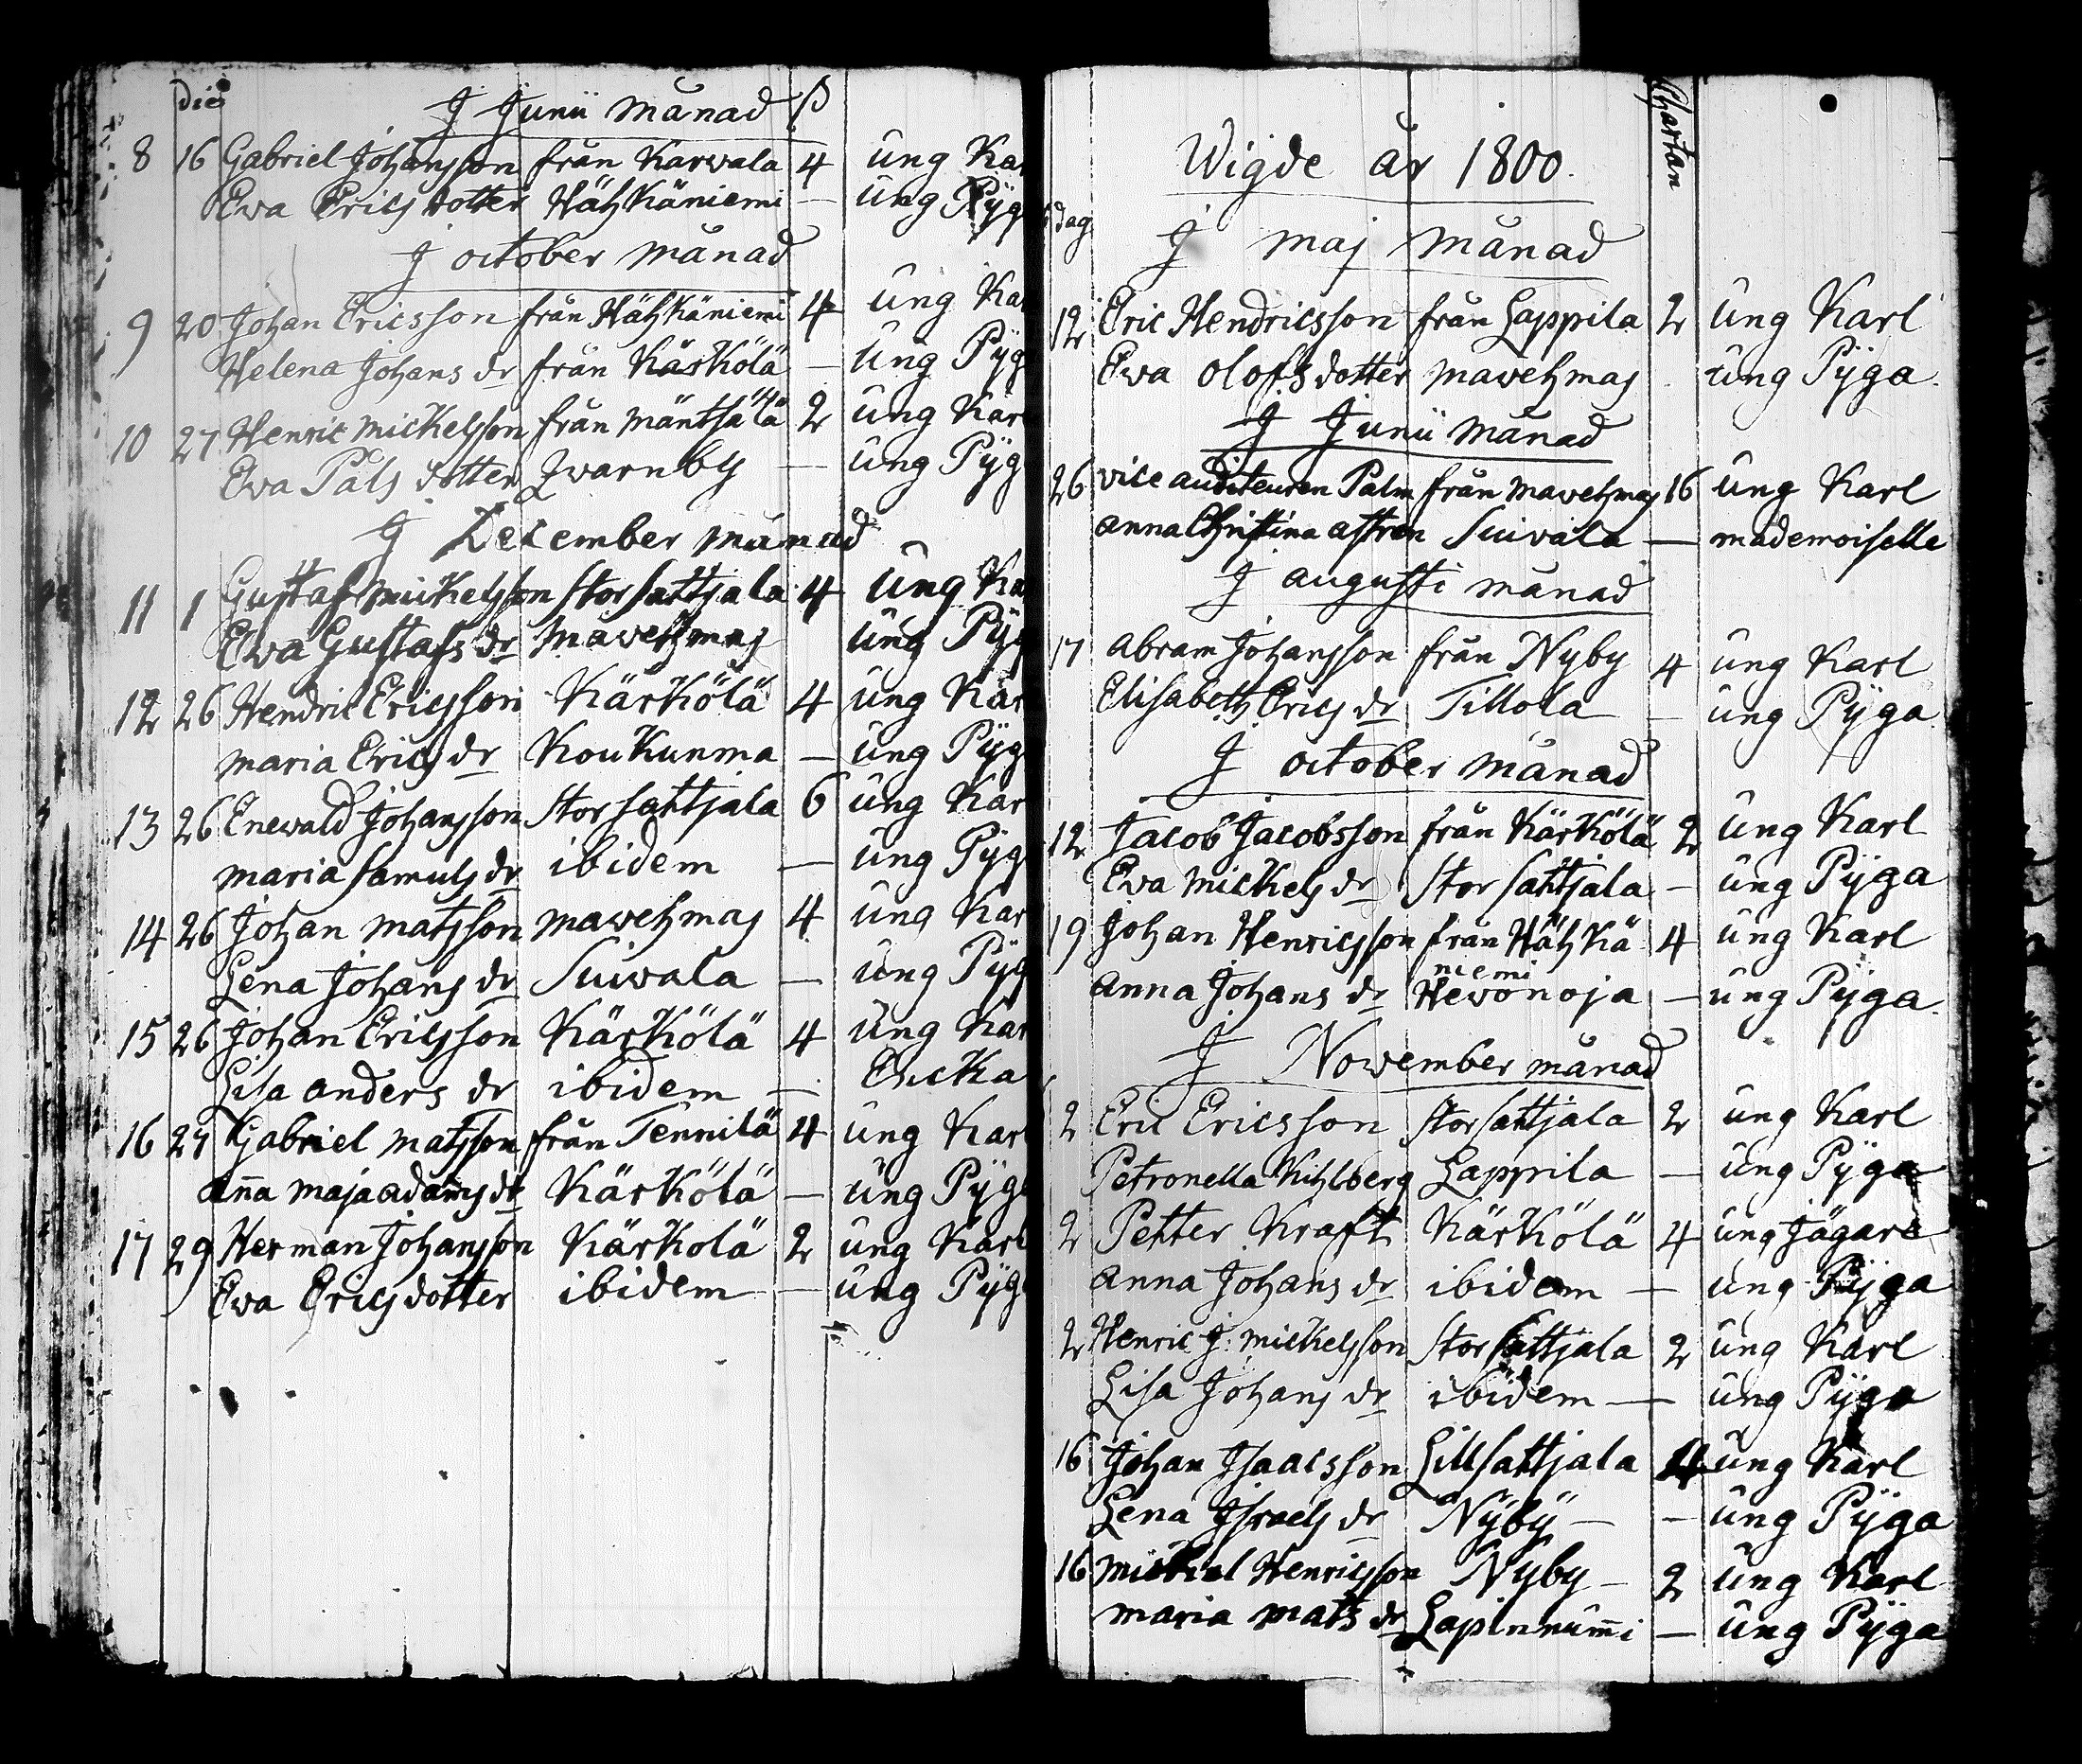 die
J Junii månad ß
8 16 Gabriel Johansson från Karwala 4 ung Ka
Ewa Erics dotter Hähkäniemi — ung Pÿg
J october månad
9 20 Johan Ericsson från Hähkäniemi 4 ung Ka
Helena Johans dr från Kärkölä — ung Pÿg
10 27 Henric Mickelsson från Mäntsälä 2 ung Kar
Ewa Påls dotter Qwarnby — ung Pÿg
J December månad
11 1 Gustaf Mickelsson Storsattjala 4 ung Ka
Ewa Gustafs dr Mawehmaj ung Pÿg
12 26 Hendric Ericsson Kärkölä 4 ung Kar
Maria Erics dr Koukunma — ung Pÿg
13 26 Enewald Johansson Storsattjala 6 ung Kar
Maria Samuls dr ibidem — ung Pÿg
14 26 Johan Matsson Mawehmaj 4 ung Kar
Lena Johans dr Suiwala — ung Pÿg
15 26 Johan Ericsson Kärkölä 4 ung Kar
Lisa Anders dr ibidem — Encka
16 27 Gabriel Matsson från Tennilä 4 ung Karl
Aña Maja Adams dr Kärkölä — ung Pÿg
17 29 Herman Johansson Kärkolä 2 ung Karl
Ewa Erics dotter ibidem — ung Pÿg
Chartan
Wigde år 1800.
dag
J Maj Månad
12 Eric Hendricsson från Lappila 2 ung Karl
Ewa Olofs dotter Mawehmaj ung Pÿga
J Junii Månad
26 vice auditeuren Palm från Mawehmaj 16 ung Karl
Anna Christina Astren Suivala — mademoiselle
J augusti månad
17 Abram Johansson från Nyby 4 ung Karl
Elisabeth Erics dr Tillola — ung Pÿga
J october månad
12 Jacob Jacobsson från Kärkölä 2 ung Karl
Ewa Mickels dr Storsattjala — ung Pÿga
19 Johan Henricsson från Hähkä 4 ung Karl
niemi
Anna Johans dr Hewonoja — ung Pÿga
J Nowember månad
2 Eric Ericsson Storsattjala 2 ung Karl
Petronella Kihlberg Lappila — ung Pÿga
2 Petter Kraft Kärkölä 4 ung Jägare
Anna Johans dr ibidem — ung Pÿga
2 Henric J: Mickelsson Storsattjala 2 ung Karl
Lisa Johans dr ibidem — ung Pÿga
16 Johan Isaacsson Lillsattjala 4 ung Karl
Lena Israels dr Nÿbÿ — — ung Pÿga
16 Mickel Henricsson Nyby — 2 ung Karl
Maria Mats dr Lapinnum̄i — ung Pÿga